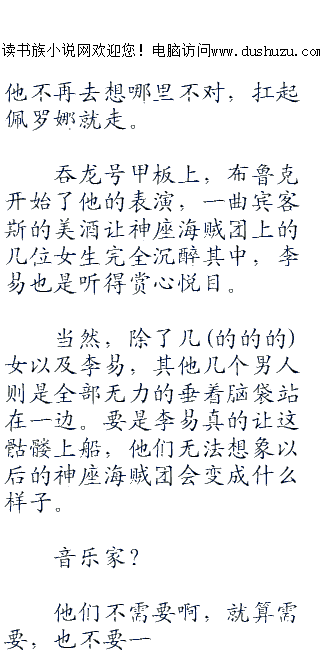 读书族小说网欢迎您！电脑访问www.dushuzu.com
他不再去想哪里不对，扛起
佩罗娜就走。
吞龙号甲板上，布鲁克
开始了他的表演，一曲宾客
斯的美酒让神座海贼团上的
几位女生完全沉醉其中，李
易也是听得赏心悦目。
当然，除了几(的的的)
女以及李易，其他几个男人
则是全部无力的垂着脑袋站
在一边。要是李易真的让这
骷髅上船，他们无法想象以
后的神座海贼团会变成什么
样子。
音乐家？
他们不需要啊，就算需
要，也不要一